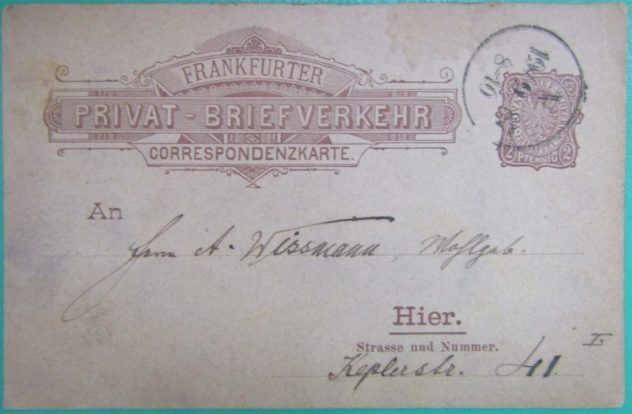 FRANKFURTER
PRIVAT-BRIEFVERKEHR
CORRESPONDENZKARTE.
2 PFENNIG 2
An
Herrn A. Wissmann, Wohlgeb.
Hier.
Strasse und Nummer.
Keplerstr. 41. I.